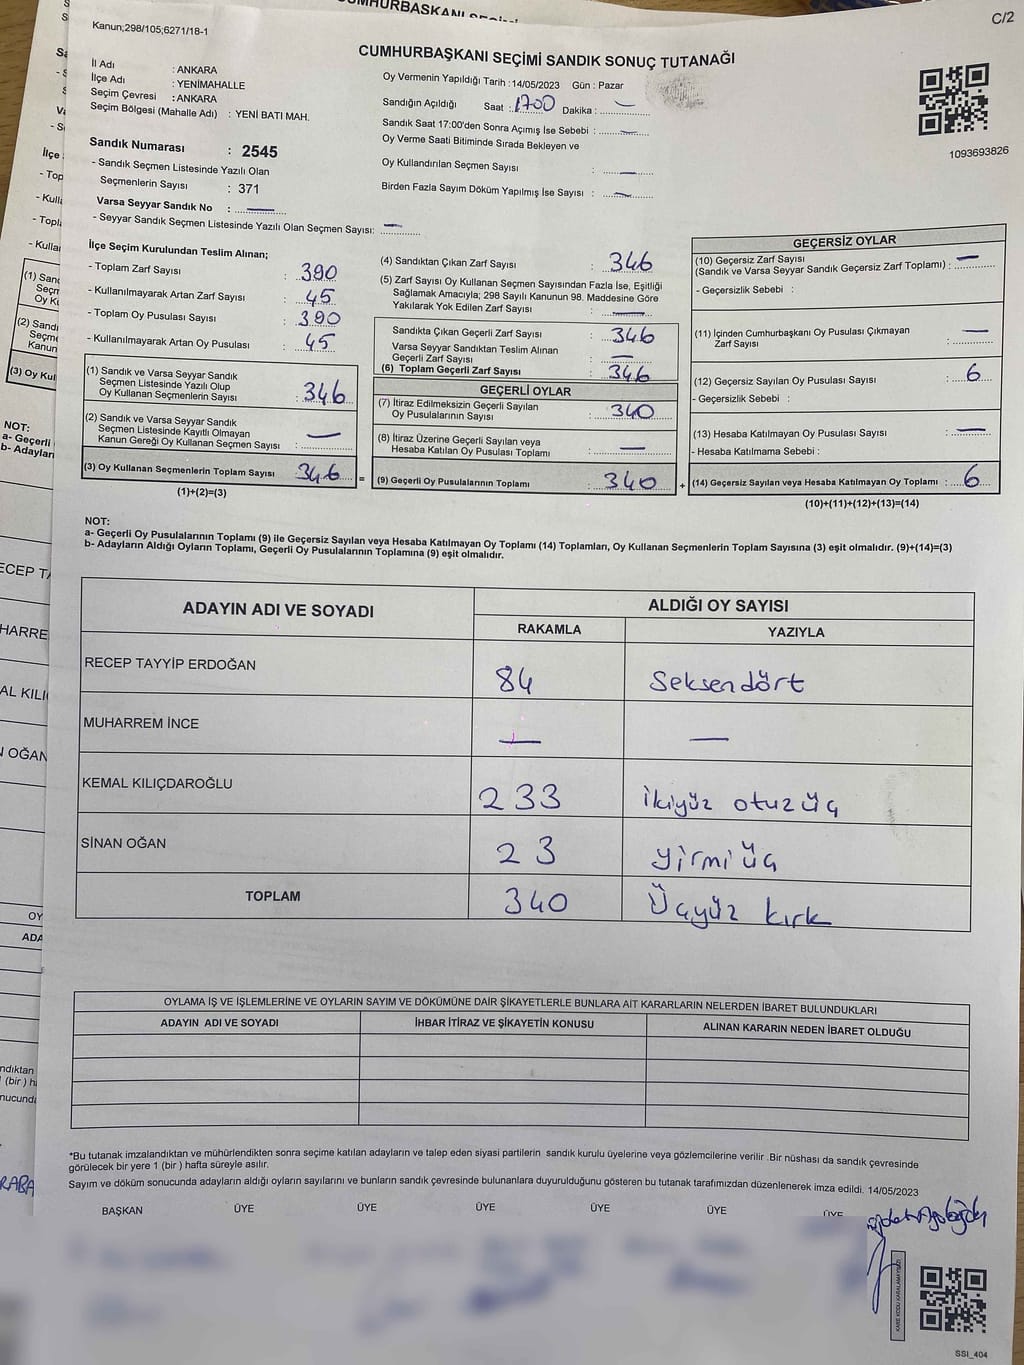 C/2
Kanun;298/105;6271/18-1
CUMHURBAŞKANI SEÇİMİ SANDIK SONUÇ TUTANAĞI
İl Adı : ANKARA
İlçe Adı : YENİMAHALLE
Seçim Çevresi : ANKARA
Seçim Bölgesi (Mahalle Adı) : YENİ BATI MAH.
Oy Vermenin Yapıldığı Tarih :14/05/2023 Gün : Pazar
Sandığın Açıldığı Saat : 1700 Dakika : —
Sandık Saat 17:00'den Sonra Açımış İse Sebebi : —
Oy Verme Saati Bitiminde Sırada Bekleyen ve
Oy Kullandırılan Seçmen Sayısı : —
Birden Fazla Sayım Döküm Yapılmış İse Sayısı : —
1093693826
Sandık Numarası : 2545
- Sandık Seçmen Listesinde Yazılı Olan
Seçmenlerin Sayısı : 371
Varsa Seyyar Sandık No : —
- Seyyar Sandık Seçmen Listesinde Yazılı Olan Seçmen Sayısı: —
İlçe Seçim Kurulundan Teslim Alınan;
- Toplam Zarf Sayısı : 390
- Kullanılmayarak Artan Zarf Sayısı : 45
- Toplam Oy Pusulası Sayısı : 390
- Kullanılmayarak Artan Oy Pusulası : 45
(1) Sandık ve Varsa Seyyar Sandık
Seçmen Listesinde Yazılı Olup
Oy Kullanan Seçmenlerin Sayısı : 346
(2) Sandık ve Varsa Seyyar Sandık
Seçmen Listesinde Kayıtlı Olmayan
Kanun Gereği Oy Kullanan Seçmen Sayısı : —
(3) Oy Kullanan Seçmenlerin Toplam Sayısı : 346 =
(1)+(2)=(3)
(4) Sandıktan Çıkan Zarf Sayısı : 346
(5) Zarf Sayısı Oy Kullanan Seçmen Sayısından Fazla İse, Eşitliği
Sağlamak Amacıyla; 298 Sayılı Kanunun 98. Maddesine Göre
Yakılarak Yok Edilen Zarf Sayısı : —
Sandıkta Çıkan Geçerli Zarf Sayısı : 346
Varsa Seyyar Sandıktan Teslim Alınan
Geçerli Zarf Sayısı : —
(6) Toplam Geçerli Zarf Sayısı : 346
GEÇERLİ OYLAR
(7) İtiraz Edilmeksizin Geçerli Sayılan
Oy Pusulalarının Sayısı : 340
(8) İtiraz Üzerine Geçerli Sayılan veya
Hesaba Katılan Oy Pusulası Toplamı : —
(9) Geçerli Oy Pusulalarının Toplamı : 340 +
GEÇERSİZ OYLAR
(10) Geçersiz Zarf Sayısı
(Sandık ve Varsa Seyyar Sandık Geçersiz Zarf Toplamı) : —
- Geçersizlik Sebebi :
(11) İçinden Cumhurbaşkanı Oy Pusulası Çıkmayan
Zarf Sayısı : —
(12) Geçersiz Sayılan Oy Pusulası Sayısı : 6
- Geçersizlik Sebebi :
(13) Hesaba Katılmayan Oy Pusulası Sayısı : —
- Hesaba Katılmama Sebebi :
(14) Geçersiz Sayılan veya Hesaba Katılmayan Oy Toplamı : 6
(10)+(11)+(12)+(13)=(14)
NOT:
a- Geçerli Oy Pusulalarının Toplamı (9) ile Geçersiz Sayılan veya Hesaba Katılmayan Oy Toplamı (14) Toplamları, Oy Kullanan Seçmenlerin Toplam Sayısına (3) eşit olmalıdır. (9)+(14)=(3)
b- Adayların Aldığı Oyların Toplamı, Geçerli Oy Pusulalarının Toplamına (9) eşit olmalıdır.
ADAYIN ADI VE SOYADI ALDIĞI OY SAYISI
RAKAMLA YAZIYLA
RECEP TAYYİP ERDOĞAN 84 Seksendört
MUHARREM İNCE — —
KEMAL KILIÇDAROĞLU 233 ikiyüz otuzüç
SİNAN OĞAN 23 yirmiüç
TOPLAM 340 Üçyüz kırk
OYLAMA İŞ VE İŞLEMLERİNE VE OYLARIN SAYIM VE DÖKÜMÜNE DAİR ŞİKAYETLERLE BUNLARA AİT KARARLARIN NELERDEN İBARET BULUNDUKLARI
ADAYIN ADI VE SOYADI İHBAR İTİRAZ VE ŞİKAYETİN KONUSU ALINAN KARARIN NEDEN İBARET OLDUĞU
*Bu tutanak imzalandıktan ve mühürlendikten sonra seçime katılan adayların ve talep eden siyasi partilerin sandık kurulu üyelerine veya gözlemcilerine verilir .Bir nüshası da sandık çevresinde
görülecek bir yere 1 (bir ) hafta süreyle asılır.
Sayım ve döküm sonucunda adayların aldığı oyların sayılarını ve bunların sandık çevresinde bulunanlara duyurulduğunu gösteren bu tutanak tarafımızdan düzenlenerek imza edildi. 14/05/2023
BAŞKAN ÜYE ÜYE ÜYE ÜYE ÜYE ÜYE
KARE KODU KARALAMAYINIZ!
SSI_404